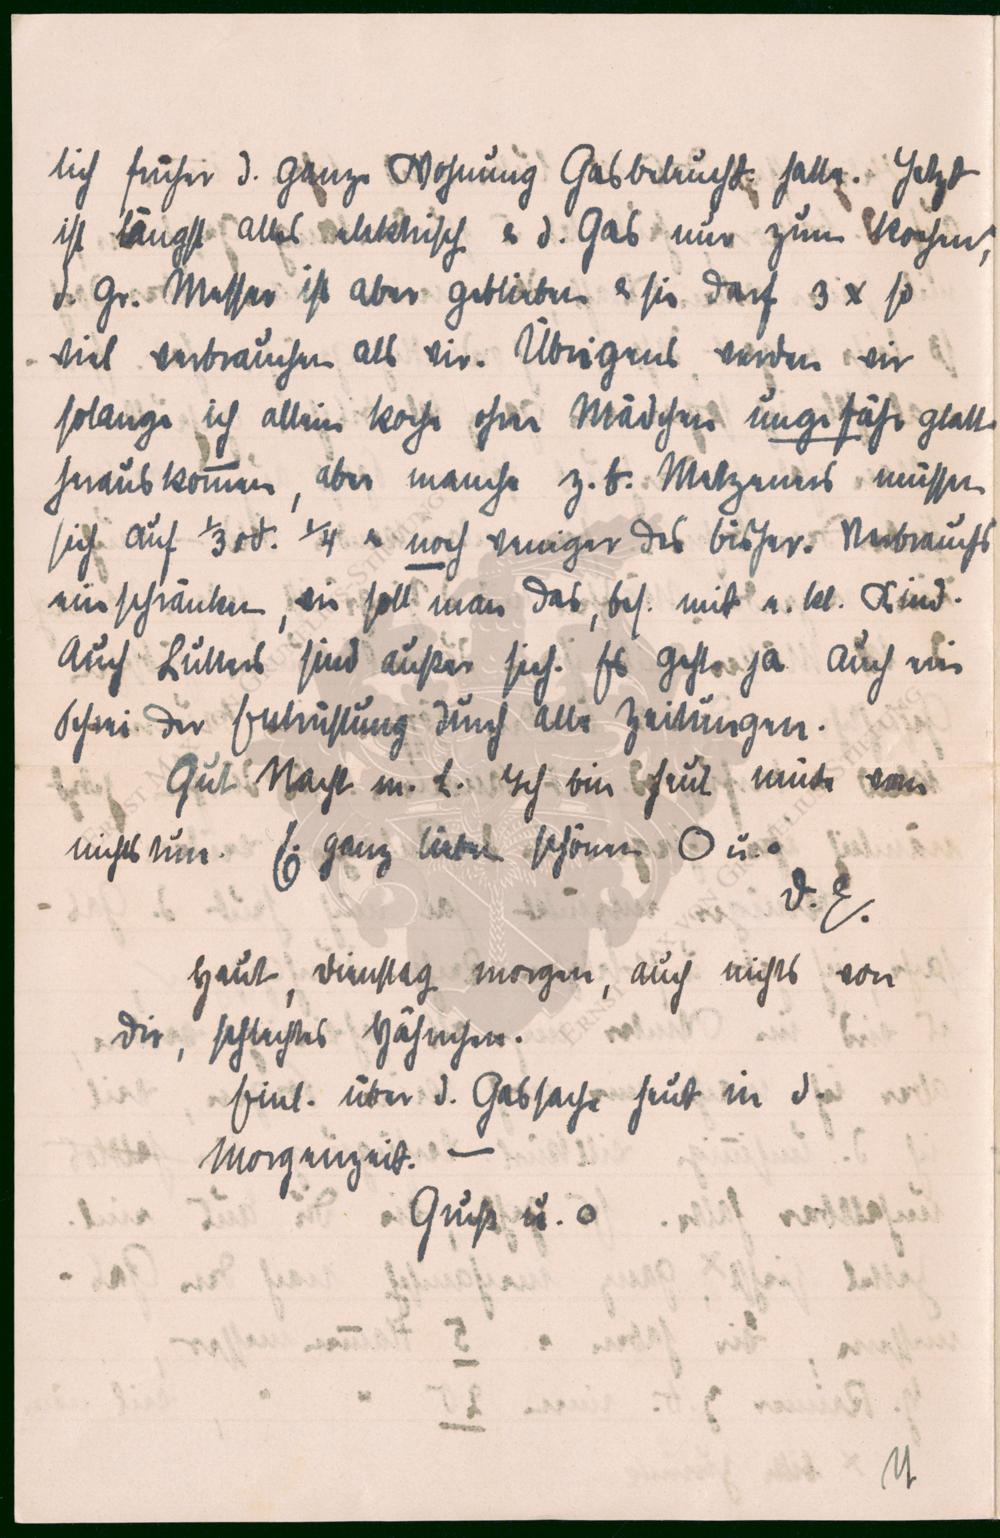 lich früher d. ganze Wohnung Gasbeleucht. hatte. Jetzt
ist längst alles elektrisch u. d. Gas nur zum Kochen,
d. Gr. Messer ist aber geblieben u. sie darf 3 x so
viel verbrauchen als wir. Übrigens werden wir
solange ich allein koche ohne Mädchen ungefähr glatt
herauskom̅en, aber manche z.B. Metzeners müssen
sich auf 1/3 od. 1/4 u. noch weniger des bisher. Verbrauchs
einschränken, wie soll man das, bes. mit e. kl. Kind.
Auch Lutters sind außer sich. Es geht ja auch ein
Schrei der Entrüstung durch alle Zeitungen.
Gut Nacht m. L. Ich bin heut müde vom
nichtstun. E. ganz lieben schönen O u. o
D. E.
Heut, Dienstag morgen, auch nichts von
Dir, schlechtes Hähnchen.
Einl. über d. Gassache heut in d.
Morgenzeit. —
Gruß u. o